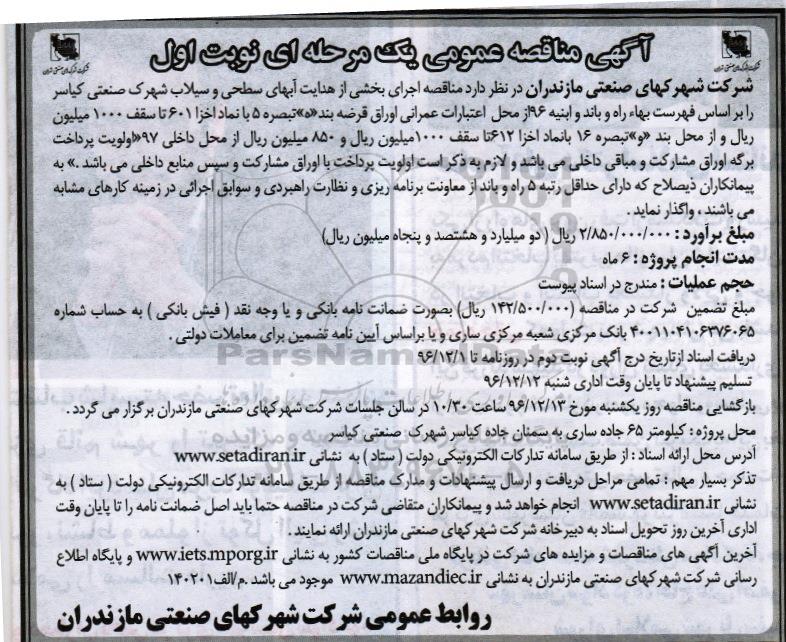 آگهی مناقصه عمومی یک مرحله ای نوبت اول
شرکت شهرکهای صنعتی مازندران در نظر دارد مناقصه اجرای بخشی از هدایت آبهای سطحی و سیلاب شهرک صنعتی کیاسر
را بر اساس فهرست بهاء راه و باند و ابنیه ۹۶از محل اعتبارات عمرانی اوراق قرضه بند«ه»تبصره ۵ با نماد اخزا ۶۰۱ تا سقف ۱۰۰۰ میلیون
ریال و از محل بند «و»تبصره ۱۶ بانماد اخزا ۶۱۲تا سقف ۱۰۰۰میلیون ریال و ۸۵۰ میلیون ریال از محل داخلی ۹۷«اولویت پرداخت
برگه اوراق مشارکت و مباقی داخلی می باشد و لازم به ذکر است اولویت پرداخت با اوراق مشارکت و سپس منابع داخلی می باشد .» به
پیمانکاران ذیصلاح که دارای حداقل رتبه ۵ راه و باند از معاونت برنامه ریزی و نظارت راهبردی و سوابق اجرائی در زمینه کارهای مشابه
می باشند ، واگذار نماید .
مبلغ برآورد : ۲/۸۵۰/۰۰۰/۰۰۰ ریال ( دو میلیارد و هشتصد و پنجاه میلیون ریال)
مدت انجام پروژه : ۶ ماه
حجم عملیات : مندرج در اسناد پیوست
مبلغ تضمین شرکت در مناقصه (۱۴۲/۵۰۰/۰۰۰ ریال) بصورت ضمانت نامه بانکی و یا وجه نقد ( فیش بانکی ) به حساب شماره
۴۰۰۱۱۰۴۱۰۶۳۷۶۰۶۵ بانک مرکزی شعبه مرکزی ساری و یا براساس آیین نامه تضمین برای معاملات دولتی .
دریافت اسناد ازتاریخ درج آگهی نوبت دوم در روزنامه تا ۹۶/۱۲/۱
تسلیم پیشنهاد تا پایان وقت اداری شنبه ۹۶/۱۲/۱۲
بازگشایی مناقصه روز یکشنبه مورخ ۹۶/۱۲/۱۳ ساعت ۱۰/۳۰ در سالن جلسات شرکت شهرکهای صنعتی مازندران برگزار می گردد .
محل پروژه : کیلومتر ۶۵ جاده ساری به سمنان جاده کیاسر شهرک صنعتی کیاسر
آدرس محل ارائه اسناد : از طریق سامانه تدارکات الکترونیکی دولت ( ستاد ) به نشانی www.setadiran.ir
تذکر بسیار مهم : تمامی مراحل دریافت و ارسال پیشنهادات و مدارک مناقصه از طریق سامانه تدارکات الکترونیکی دولت ( ستاد ) به
نشانی www.setadiran.ir انجام خواهد شد و پیمانکاران متقاضی شرکت در مناقصه حتما باید اصل ضمانت نامه را تا پایان وقت
اداری آخرین روز تحویل اسناد به دبیرخانه شرکت شهرکهای صنعتی مازندران ارائه نمایند .
آخرین آگهی های مناقصات و مزایده های شرکت در پایگاه ملی مناقصات کشور به نشانی www.iets.mporg.ir و پایگاه اطلاع
رسانی شرکت شهرکهای صنعتی مازندران به نشانی www.mazandiec.ir موجود می باشد .م/الف۱۴۰۲۰۱
روابط عمومی شرکت شهرکهای صنعتی مازندران